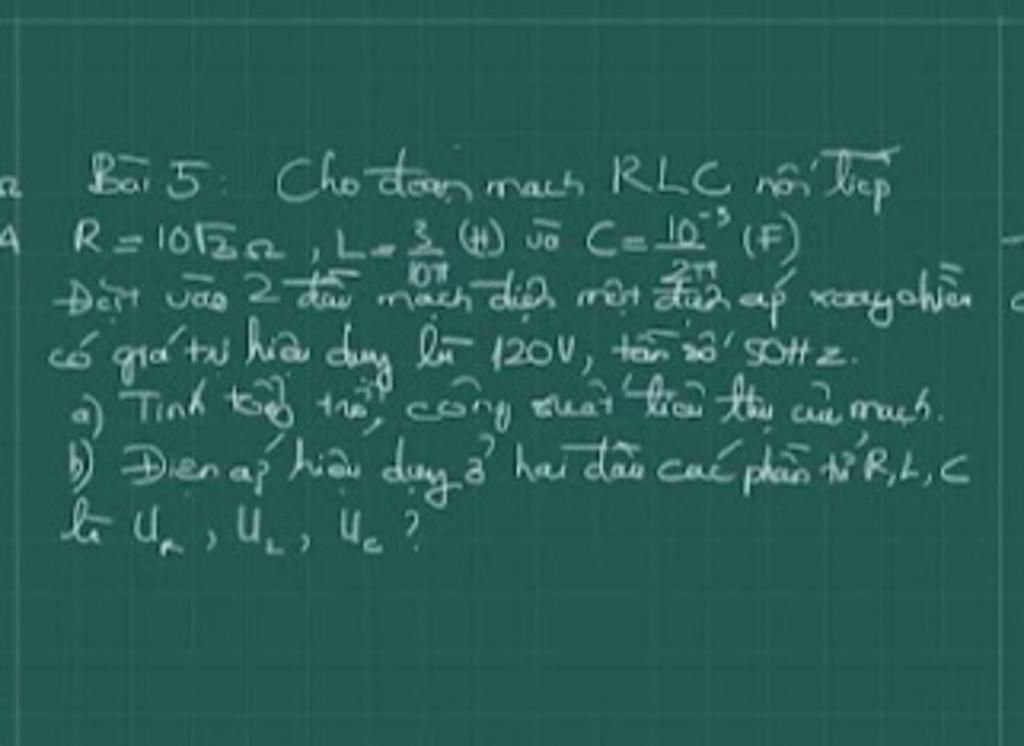 Bài 5: Cho đoạn mạch RLC nối tiếp
R = 10√3 Ω, L = 3/10π (H) và C = 10⁻³/2π (F)
Đặt vào 2 đầu mạch điện một điện áp xoay chiều
có giá trị hiệu dụng là 120V, tần số 50Hz.
a) Tính tổng trở, công suất tiêu thụ của mạch.
b) Điện áp hiệu dụng ở hai đầu các phần tử R, L, C
là U_R, U_L, U_C?